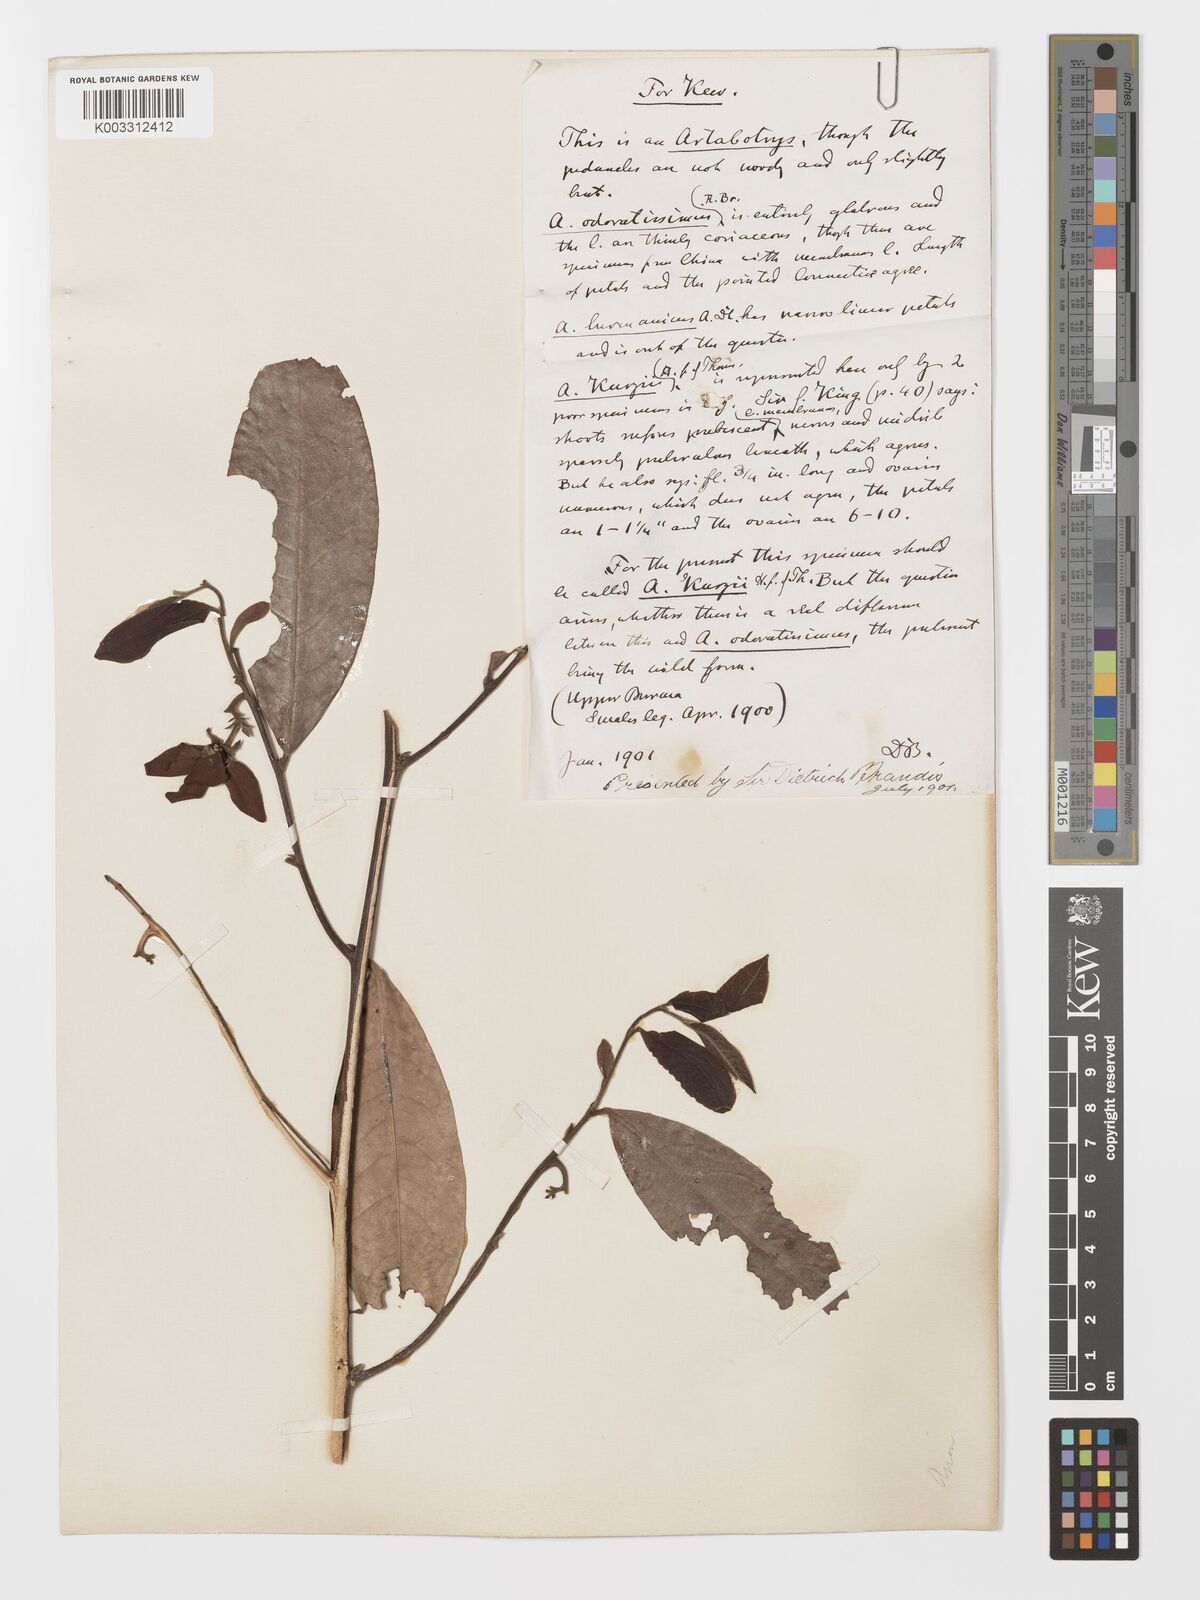 ROYAL BOTANIC GARDENS KEW
K003312412
For Kew.
This is an Artabotrys, though the
peduncles are not woody and only slightly
bent.
(R. Br.
A. odoratissimus is entirely glabrous and
the l. are thinly coriaceous, though there are
specimens from China with membranous l. Length
of petals and the pointed connective agree.
A. burmanicus A. DC. has narrow linear petals
and is out of the question.
(H. f. & Thoms.
A. Kurzii is represented here only by 2
poor specimens Sir G. King (p. 40) says:
l. membranous,
shoots rufous pubescent nerves and midrib
sparsely puberulous beneath, which agrees.
But he also says: fl. 3/4 in. long and ovaries
numerous, which does not agree, the petals
are 1-1 1/4" and the ovaries are 6-10.
For the present this specimen should
be called A. Kurzii H. f. & Th. But the question
arises, whether there is a real difference
between this and A. odoratissimus, the pubescent
being the wild form.
(Upper Burma
Smales leg. Apr. 1900)
Jan. 1901 DB.
Presented by Sir Dietrich Brandis
July 1901.
inches
centimetres
Don Williams
M001216
Density
Kew
Royal Botanic Gardens
copyright reserved
0 1 2 3 4 5 6 7 8 9 10
cm